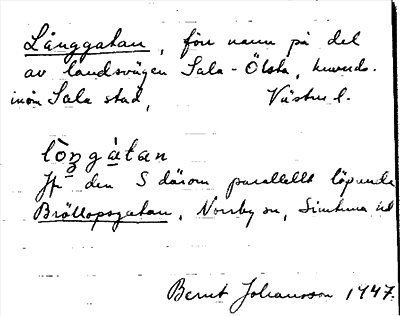 Långgatan, förr namn på del
av landsvägen Sala - Ölsta, huvuds.
inom Sala stad, Västm l.
lòŋgàtan
Jfr den S därom parallellt löpande
Bröllopsgatan, Norrby sn, Simtuna
Bernt Johansson 1947.